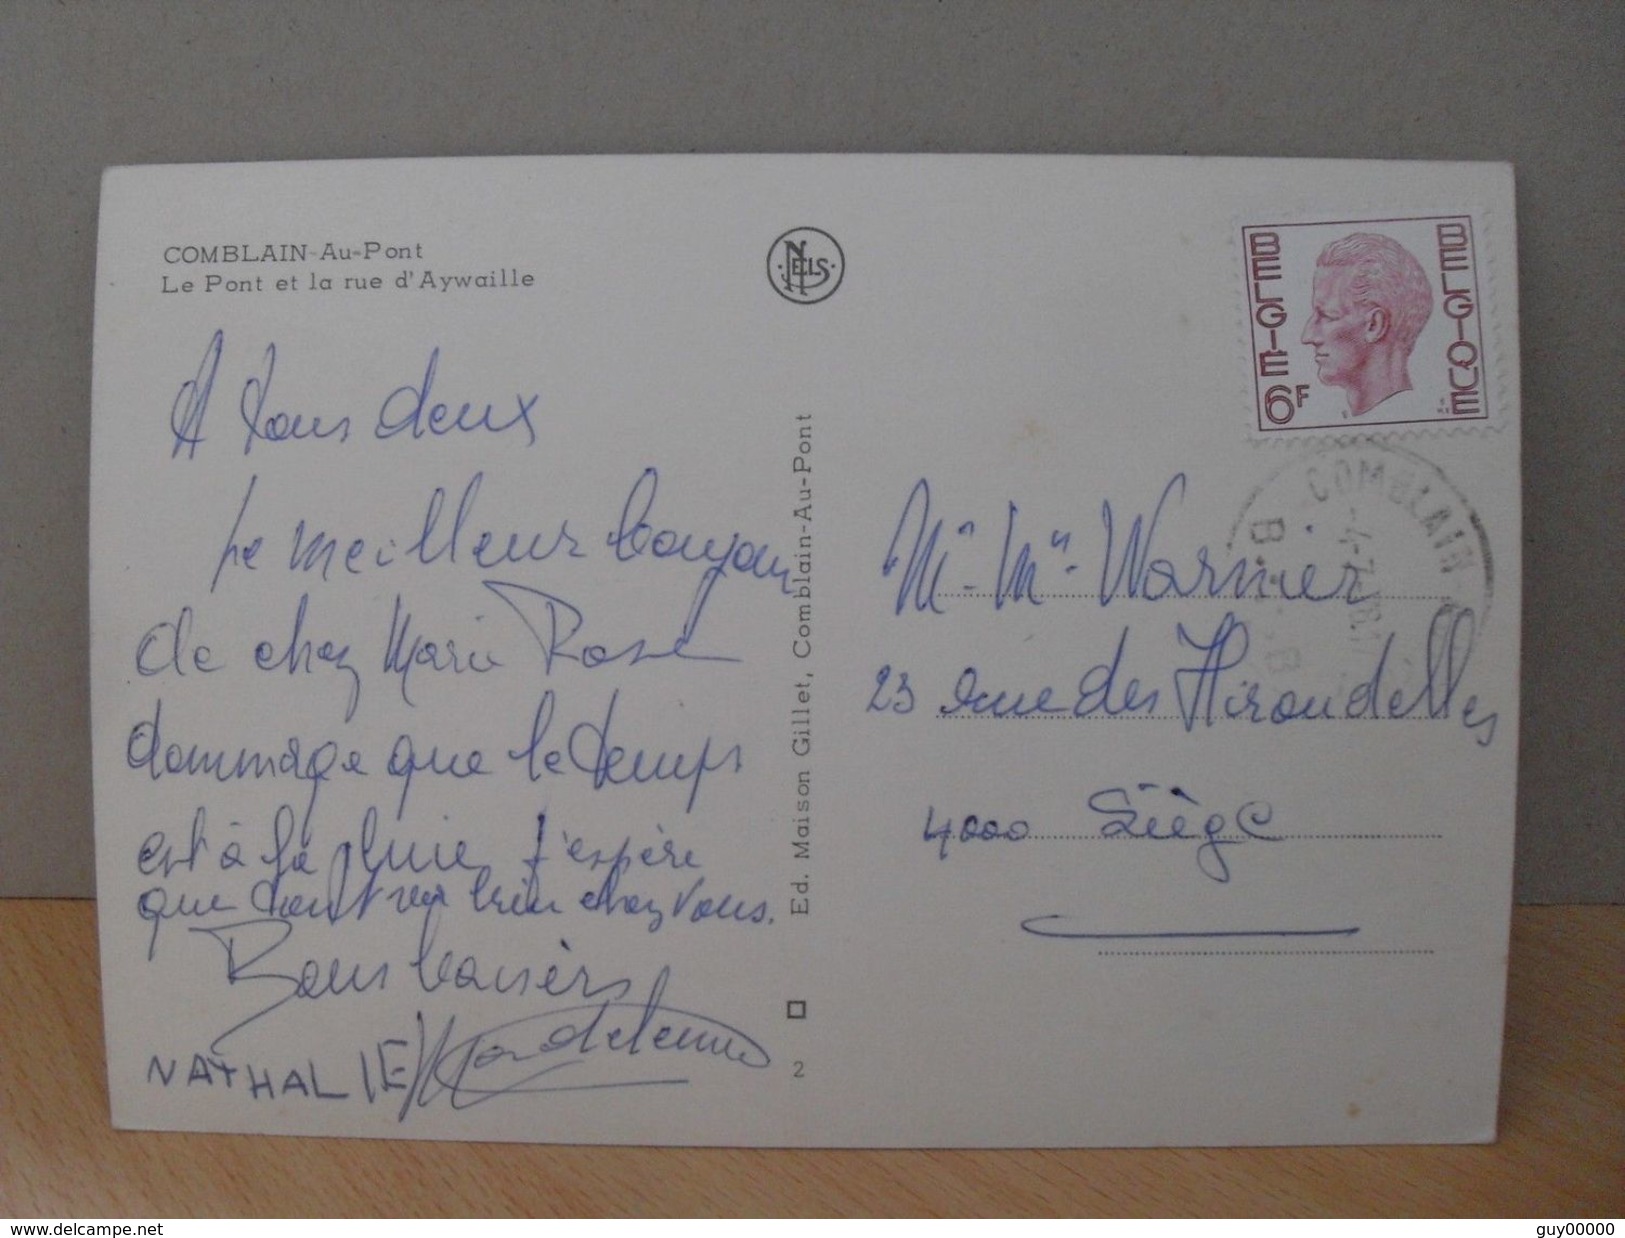 COMBLAIN-Au-Pont
Le Pont et la rue d'Aywaille
A tous deux
Le meilleur bonjour
de chez Marie Rose
dommage que le temps
est à la pluie, J'espère
que tout va bien chez vous.
Bons baisers
NATHALIE
Ed. Maison Gillet, Comblain-Au-Pont
2
NELS
BELGIE
BELGIQUE
6F
COMBLAIN
-4-7-
B
B
Mr. Mme. Warnier
23 rue des Hirondelles
4000 Liège
www.delcampe.net
guy00000